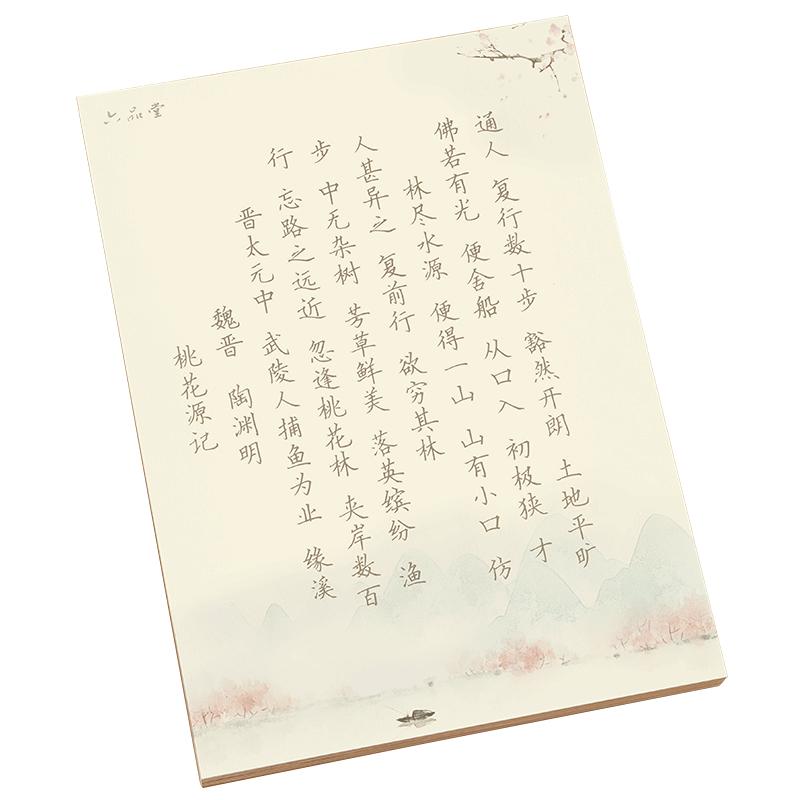 六品堂
桃花源记
魏晋 陶渊明
晋太元中 武陵人捕鱼为业 缘溪
行 忘路之远近 忽逢桃花林 夹岸数百
步 中无杂树 芳草鲜美 落英缤纷 渔
人甚异之 复前行 欲穷其林
林尽水源 便得一山 山有小口 仿
佛若有光 便舍船 从口入 初极狭 才
通人 复行数十步 豁然开朗 土地平旷